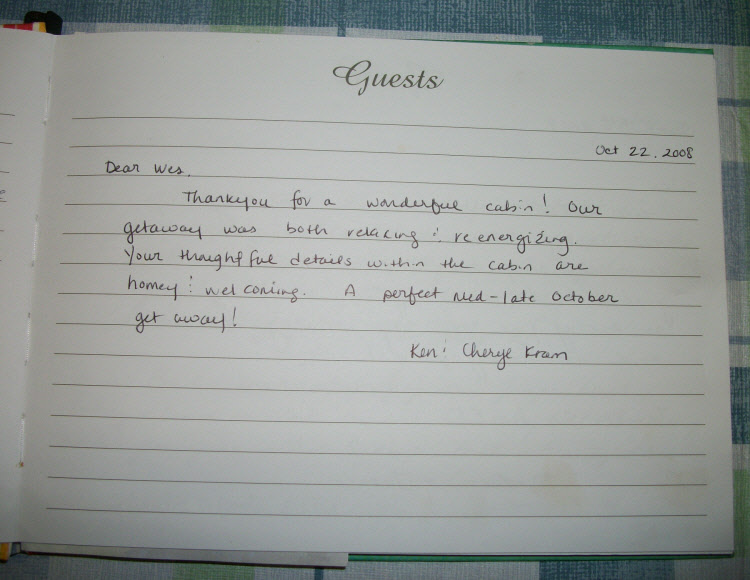 Guests
Oct 22, 2008
Dear Wes,
Thankyou for a wonderful cabin! Our
getaway was both relaxing & reenergizing.
Your thoughtful details within the cabin are
homey & welcoming. A perfect mid-late October
get away!
Ken & Cheryl Kram